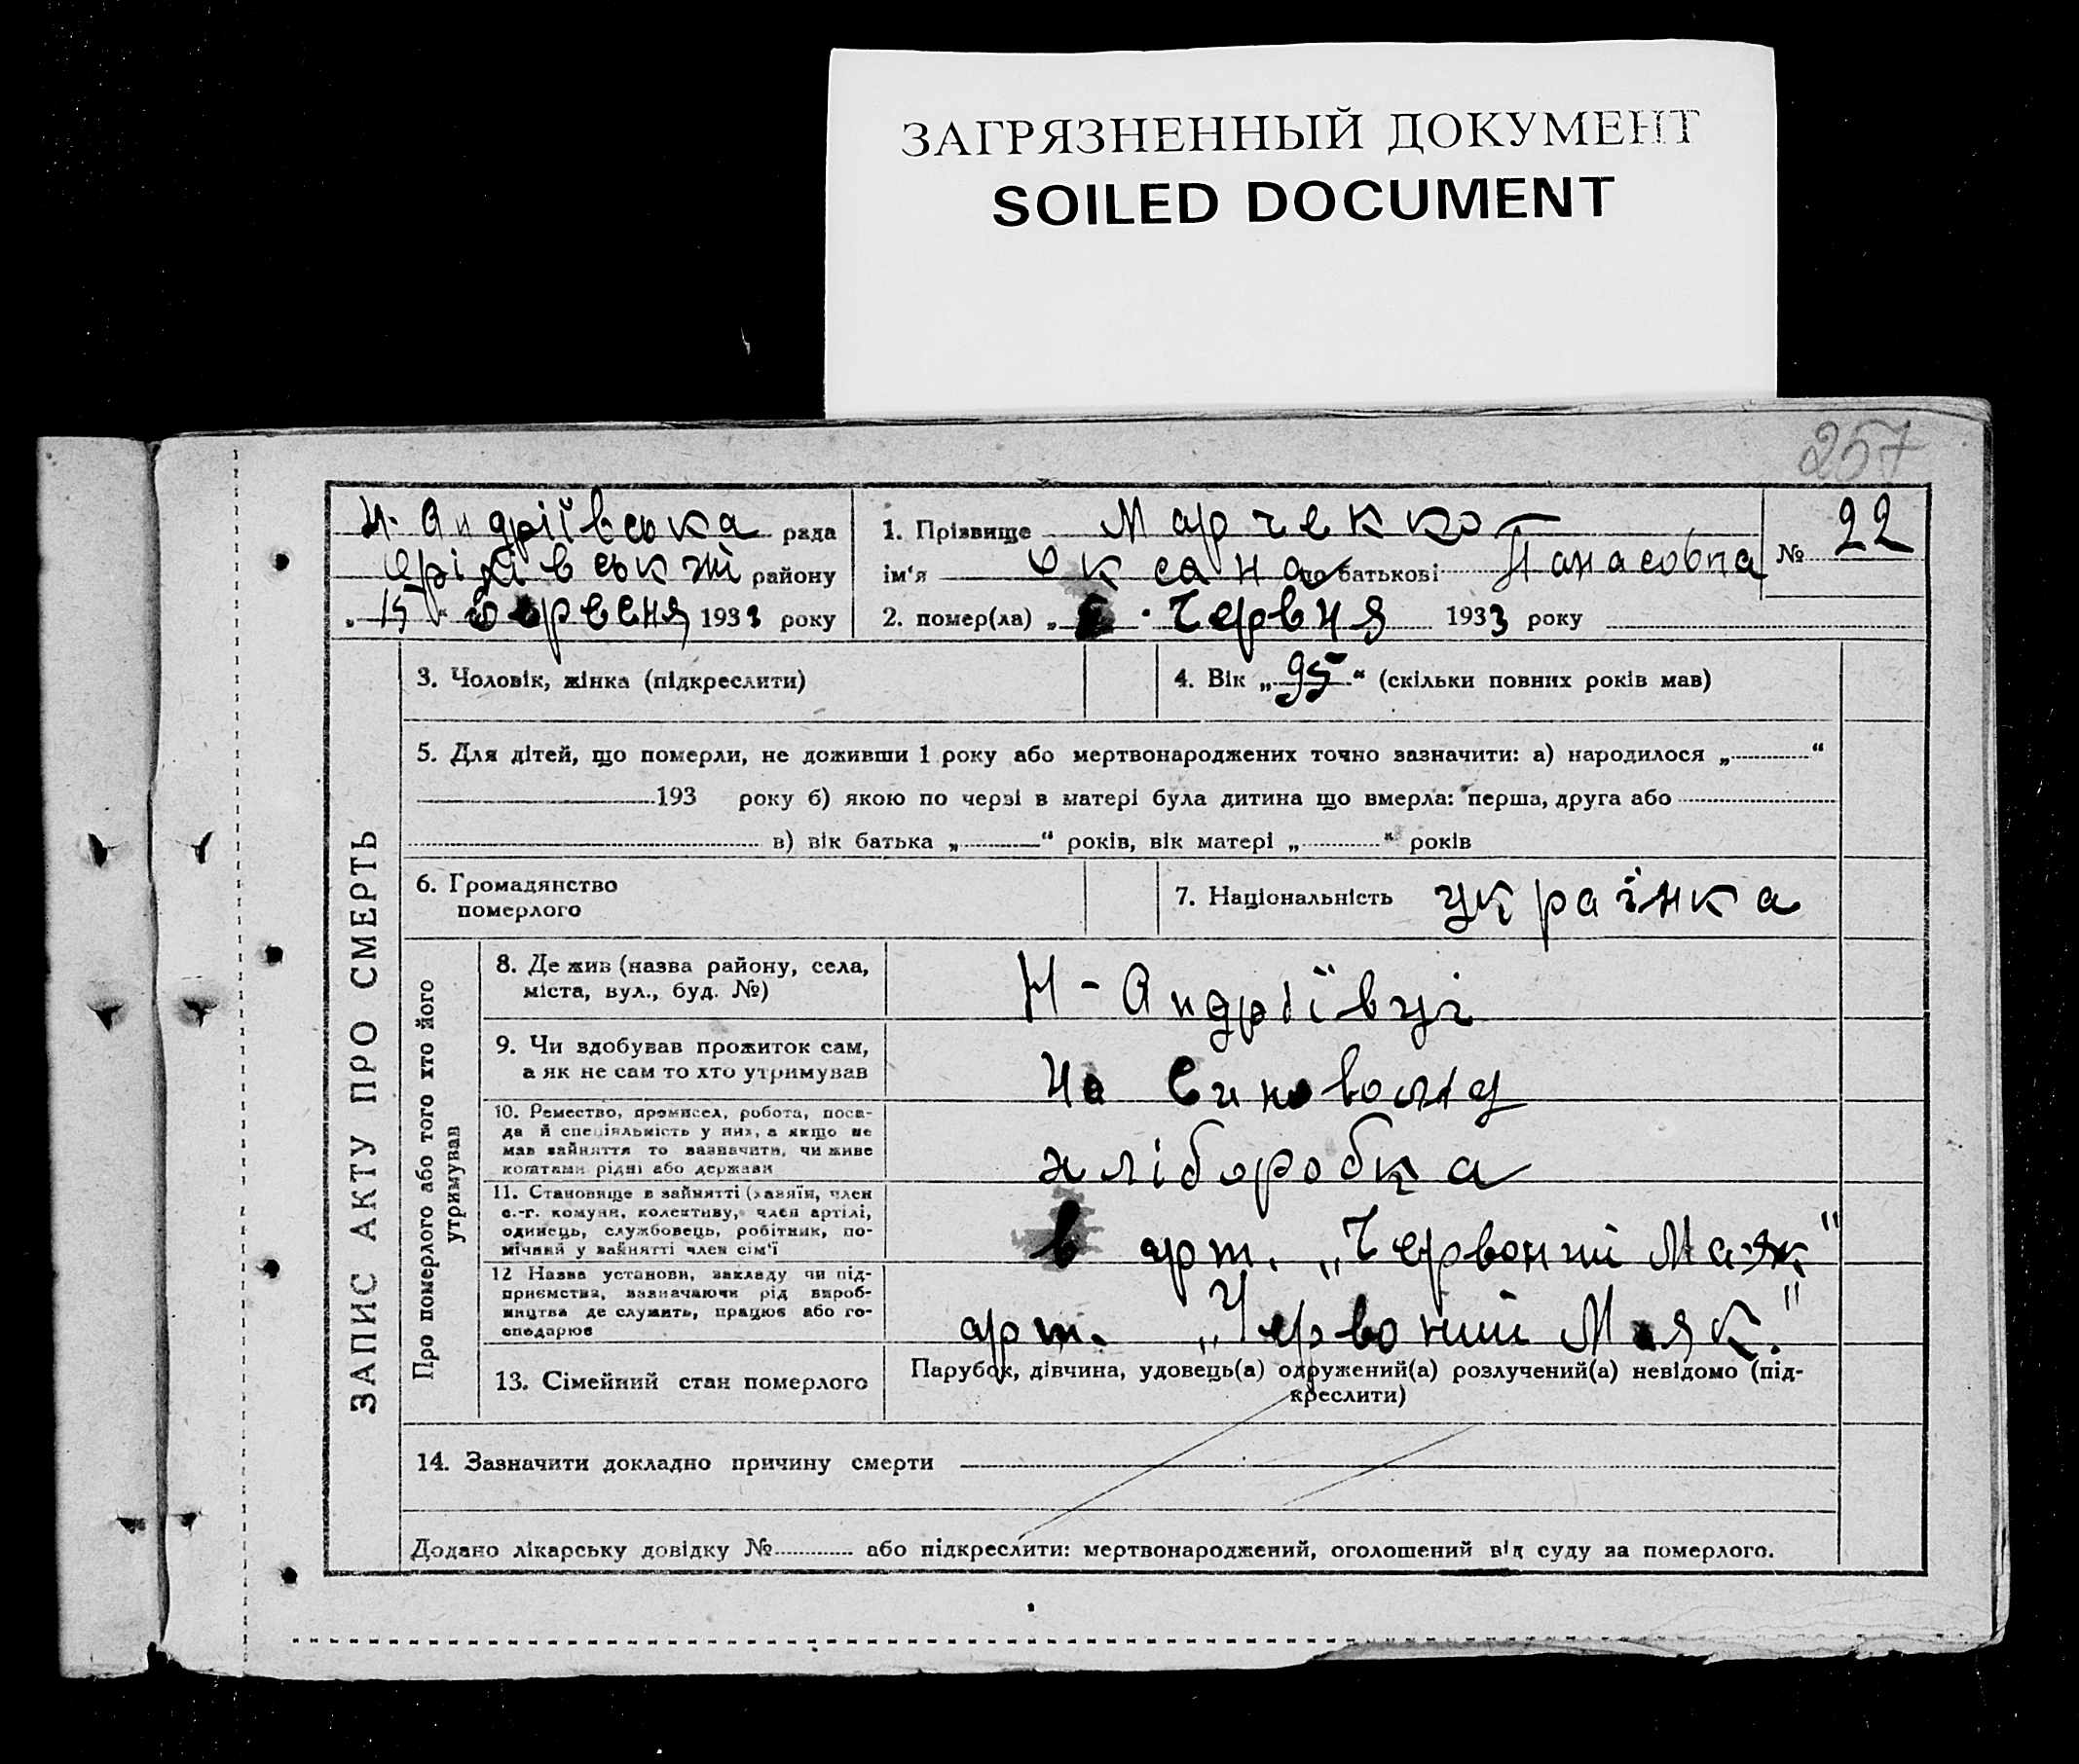 ЗАГРЯЗНЕННЫЙ ДОКУМЕНТ
SOILED DOCUMENT
257
Н. Андріївська рада
Оріхівський району
„15“ 1933 року
1. Прізвище Марченко
ім‘я Оксана по батькові Панасовна
2. помер(ла) „ “ Червня 1933 року
№ 22
ЗАПИС АКТУ ПРО СМЕРТЬ
3. Чоловік, жінка (підкреслити)
4. Вік „95“ (скільки повних років мав)
5. Для дітей, що померли, не доживши 1 року або мертвонароджених точно зазначити: а) народилося „ “
193 року б) якою по черзі в матері була дитина що вмерла: перша, друга або
в) вік батька „ “ років, вік матері „ “ років
6. Громадянство
померлого
7. Національність українка
Про померлого або того хто його
утримував
8. Де жив (назва району, села,
міста, вул., буд. №)
Н-Андріївці
9. Чи здобував прожиток сам,
а як не сам то хто утримував
На
10. Ремество, промисел, робота, поса-
да й спеціяльність у них, а якщо не
мав зайняття то зазначити, чи живе
коштами рідні або держави
хліборобка
11. Становище в зайнятті (хазяїн, член
с.-г. комуни, колективу, член артілі,
одинець, службовець, робітник, по-
мічний у зайнятті член сім‘ї
в арт. „Червоний Маяк“
12 Назва установи, закладу чи під-
приємства, зазначаючи рід вироб-
ництва де служить, працює або го-
сподарює
арт. „Червоний Маяк.“
13. Сімейний стан померлого
Парубок, дівчина, удовець(а) одружений(а) розлучений(а) невідомо (під-
креслити)
14. Зазначити докладно причину смерти
Додано лікарську довідку № або підкреслити: мертвонароджений, оголошений від суду за померлого.